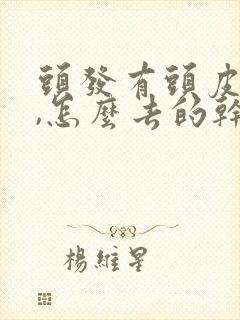 頭發有頭皮
,怎麼去的幹
楊維星